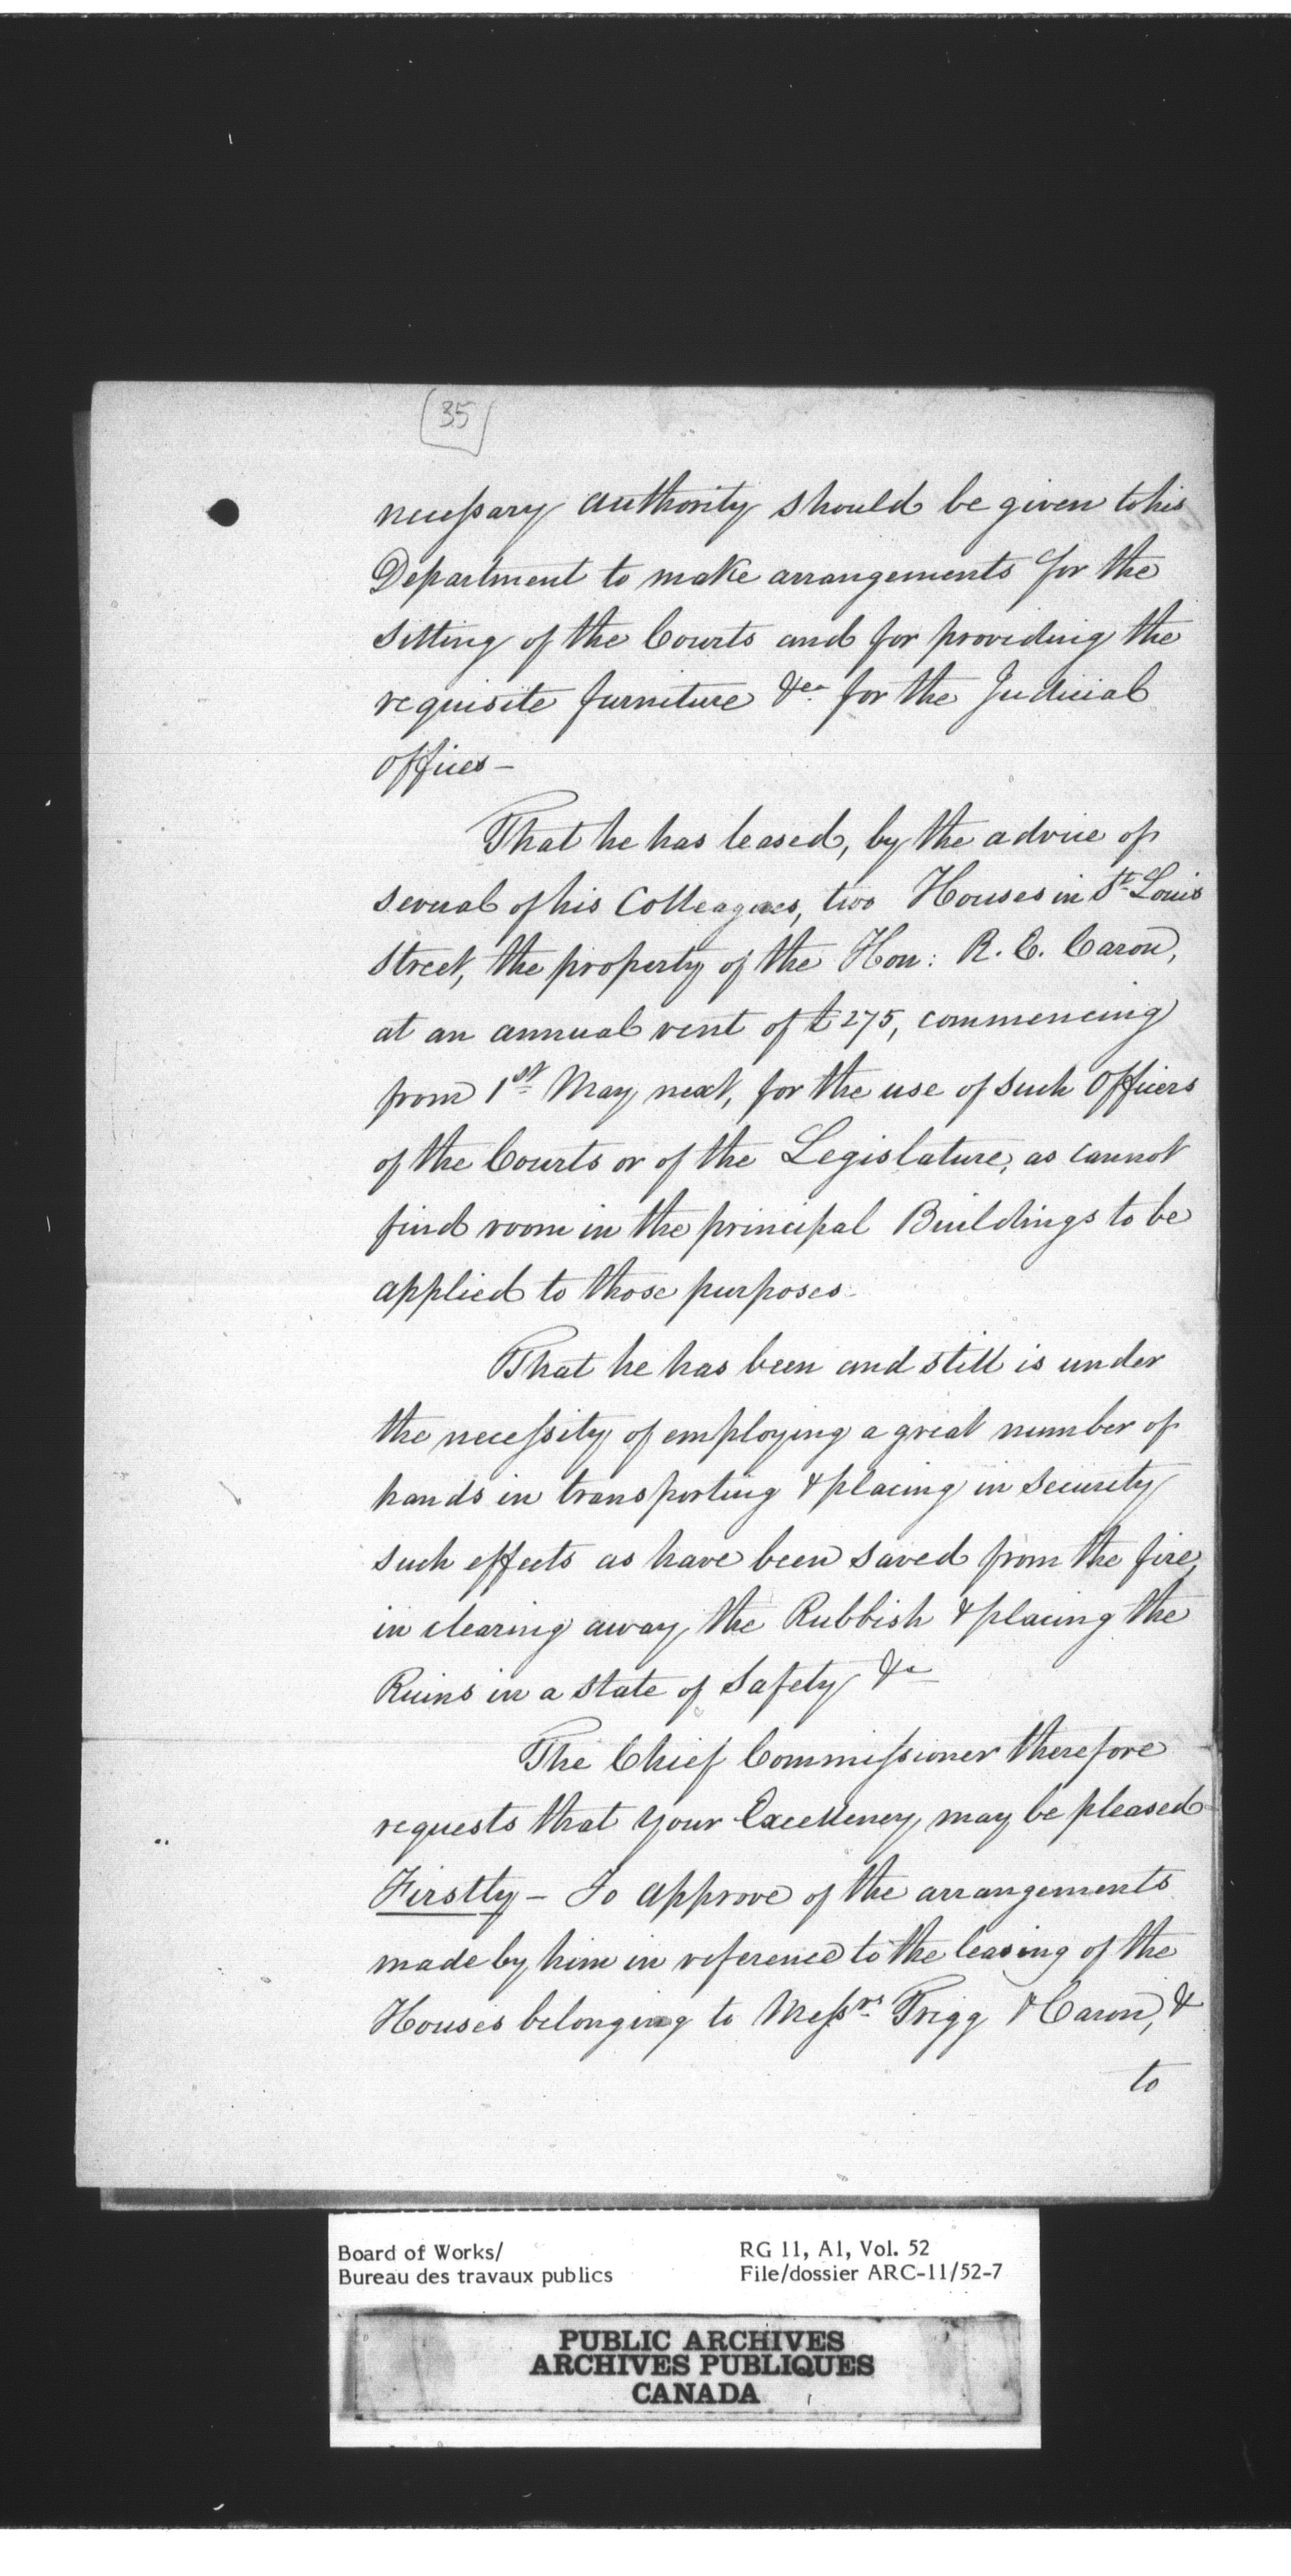 35
necessary authority should be given to his
Department to make arrangements for the
sitting of the Courts and for providing the
requisite furniture &ca for the Judicial
offices—
That he has leased, by the advice of
several of his Colleagues, two Houses in St. Louis
Street, the property of the Hon: R. E. Caron,
at an annual rent of £275, commencing
from 1st May next, for the use of such Officers
of the Courts or of the Legislature, as cannot
find room in the principal Buildings to be
applied to those purposes.
That he has been and still is under
the necessity of employing a great number of
hands in transporting & placing in security
such effects as have been saved from the fire,
in clearing away the Rubbish & placing the
Ruins in a state of Safety &a
The Chief Commissioner therefore
requests that Your Excellency may be pleased
Firstly — To approve of the arrangements
made by him in reference to the leasing of the
Houses belonging to Messrs. Trigg & Caron, &
to
Board of Works/
Bureau des travaux publics
RG 11, A1, Vol. 52
File/dossier ARC-11/52-7
PUBLIC ARCHIVES
ARCHIVES PUBLIQUES
CANADA